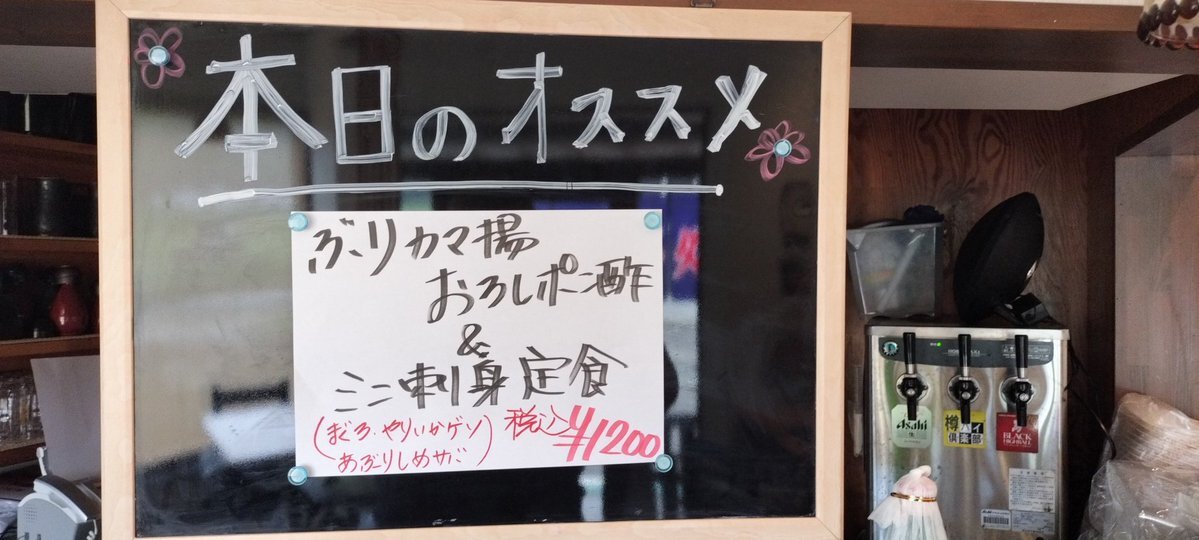 本日のオススメ
ぶりカマ揚
おろしポン酢
&
ミニ刺身定食
(まぐろ・やりいかゲソ
あぶりしめサバ)
税込¥1200
Asahi
生
樽ハイ
倶楽部
BLACK
HIGHBALL